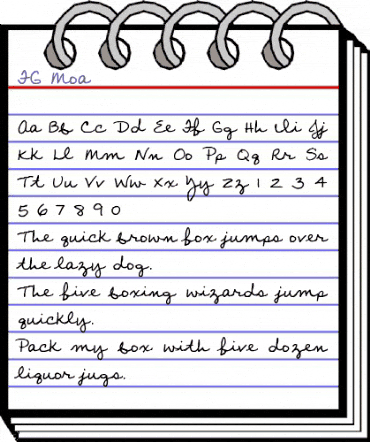 FG Moa
Aa Bb Cc Dd Ee Ff Gg Hh Ii Jj
Kk Ll Mm Nn Oo Pp Qq Rr Ss
Tt Uu Vv Ww Xx Yy Zz 1 2 3 4
5 6 7 8 9 0
The quick brown fox jumps over
the lazy dog.
The five boxing wizards jump
quickly.
Pack my box with five dozen
liquor jugs.